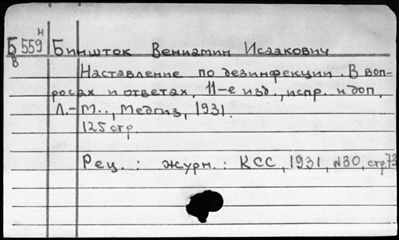 Б 559 Н
В
Биншток Вениамин Исаакович
Наставление по дезинфекции. В воп-
росах и ответах. 11-е изд., испр. и доп.
Л.-М., Медгиз, 1931.
125 стр
Рец.: журн.: КСС, 1931, №30, стр.73